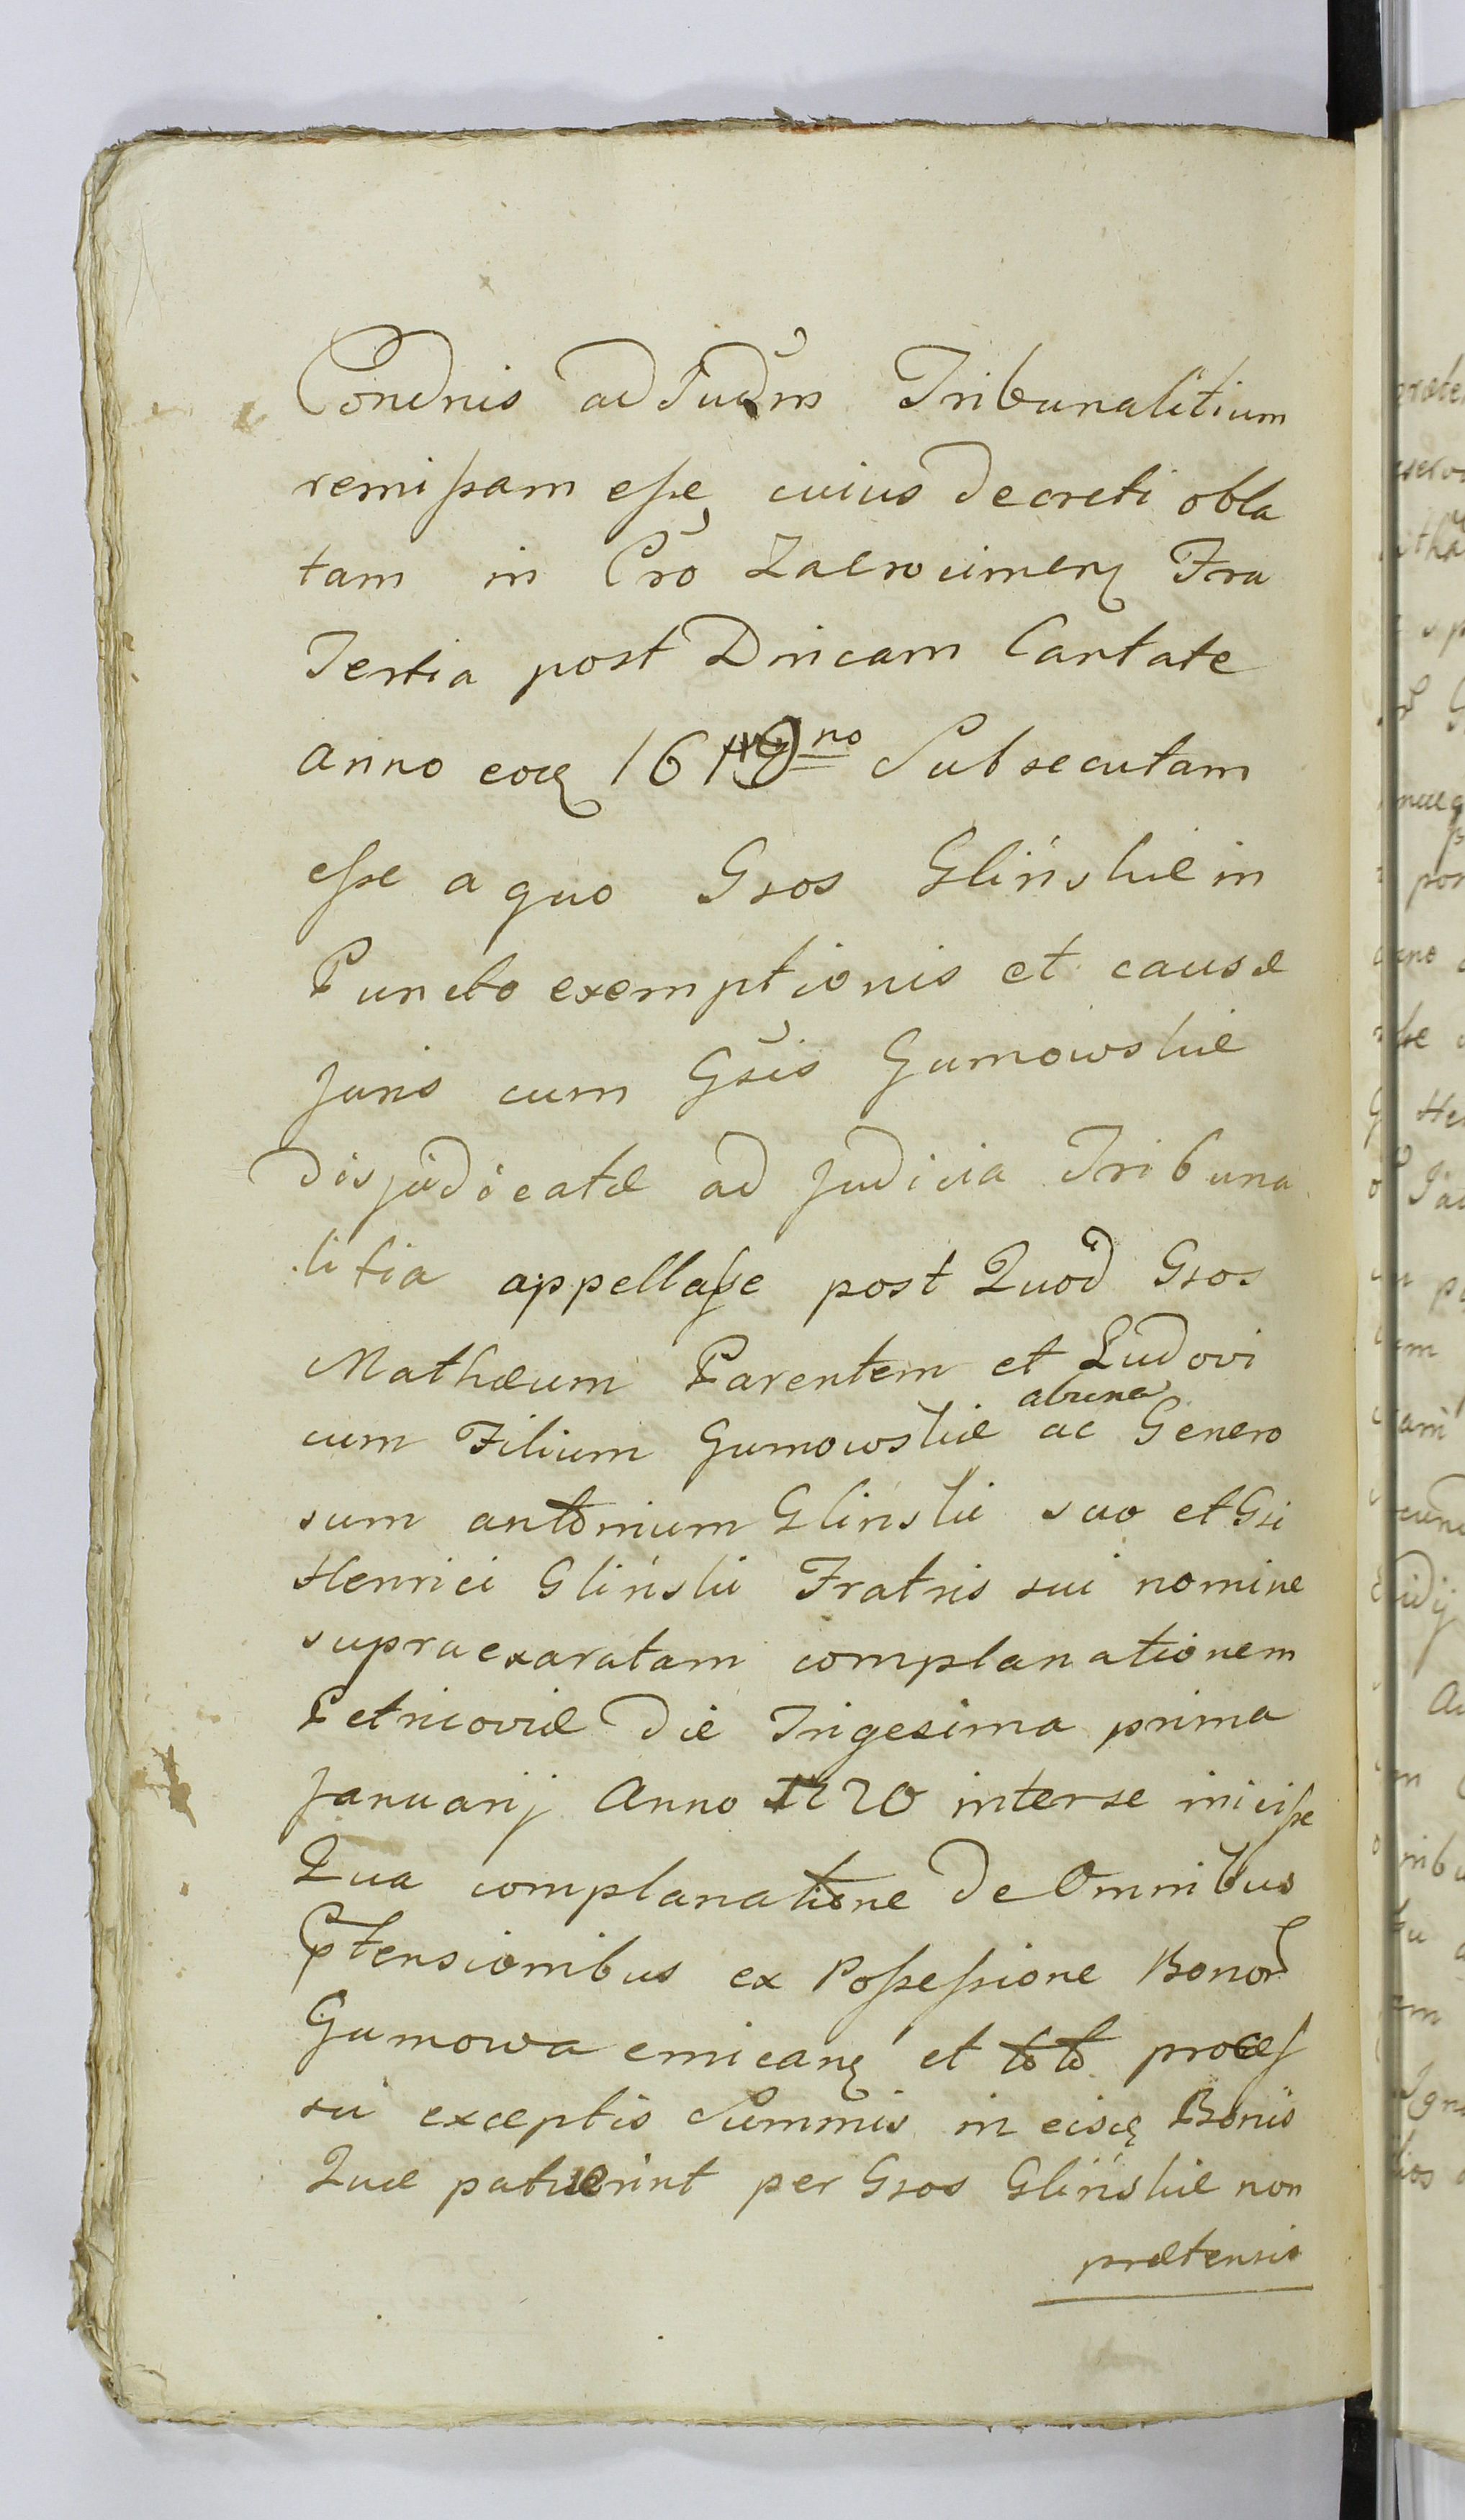 Condnis ad Judm Tribunalitium
remißam eße, cuius Decreti obla
tam in Cro Zacrocimenq Fra
Tertia post Dnicam Cantate
anno eoq 16 no Subsecutam
eße a quo Gsos Glińskie in
Puncto exemptionis et causæ
Juris cum Gsis Gumowskie
disjudicatæ ad Judicia Tribuna
litia appellaße post Quod Gsos
Mathæum Parentem et Ludovi
cum Filium Gumowskie abuna ac Genero
sum antonium Glinski suo et Gsi
Henrici Gliński Fratris sui nomine
supraexaratam complanationem
Petricoviæ die Trigesima prima
Januarij Anno 1720 inter se iniciße
Qua complanatione de Omnibus
Ptensionibus ex Poßeßione Bonor
Gumowa emicanq et toto proces
su exceptis Summis in eisq Bonis
Quæ patuerint per Gsos Glińskie non
prætensis